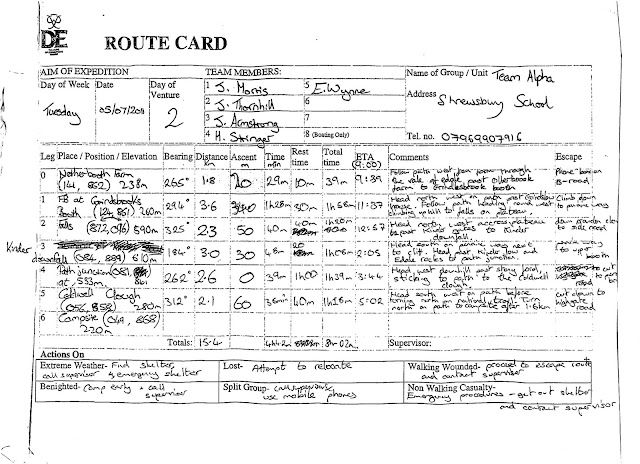 DE
ROUTE CARD
AIM OF EXPEDITION
TEAM MEMBERS:
Name of Group / Unit Team Alpha
Day of Week Date Day of Venture
Tuesday 05/07/2011 2
1 J. Morris 5 E. Wynne
2 J. Thornhill 6
3 J. Armstrong 7
4 H. Stringer 8 (Boating Only)
Address Shrewsbury School
Tel. no. 07969907916
Leg Place / Position / Elevation Bearing Distance km Ascent m Time min Rest time Total time ETA (9:00) Comments Escape
0 Netherbooth Farm (144, 852) 238m 265° 1.8 20 29m 10m 39m 9:39
Follow path west from farm through the vale of edale, past ollerbrook farm to Grindlesbrook booth
B-road
1 FB at Grindsbrooks Booth (124, 861) 260m 294° 3.6 1h28m 30m 1h58m 11:37
Head north west on path
2 Falls (872, 096) 590m 325° 2.3 50 40m 12:57
Head north west across plateau to Kinder downfall.
to side road
Kinder downfall (084, 889) 610m 184° 3.0 30 46m 20m 1h06m 2:05
Head south on pennine way next to cliff. Head past Kinder low and edale rocks to path junction.
4 Path junction (081, 861) at, 553m. 262° 2.6 0 39m 1h00 1h39m 3:44
West downhill past stony ford, sticking to path to the Coldwell clough.
5 Coldwell Clough (056, 858) 280m 312° 2.1 60 36min 40m 1h16m 5:02
Head south west on path before turning north on national trail. Turn north on path to campsite after 1.6km
cut down to Highgate road
6 Campsite (049, 868) 220m
Totals: 15.4 8h-02m
Supervisor:
Actions On
Extreme Weather- Find shelter, call supervisor & emergency shelter
Lost- Attempt to relocate
Walking Wounded- proceed to escape route and contact supervisor
Benighted- Camp early & call supervisor
Split Group- call supervisor, use mobile phones
Non Walking Casualty- Emergency procedures - get out shelter and contact supervisor